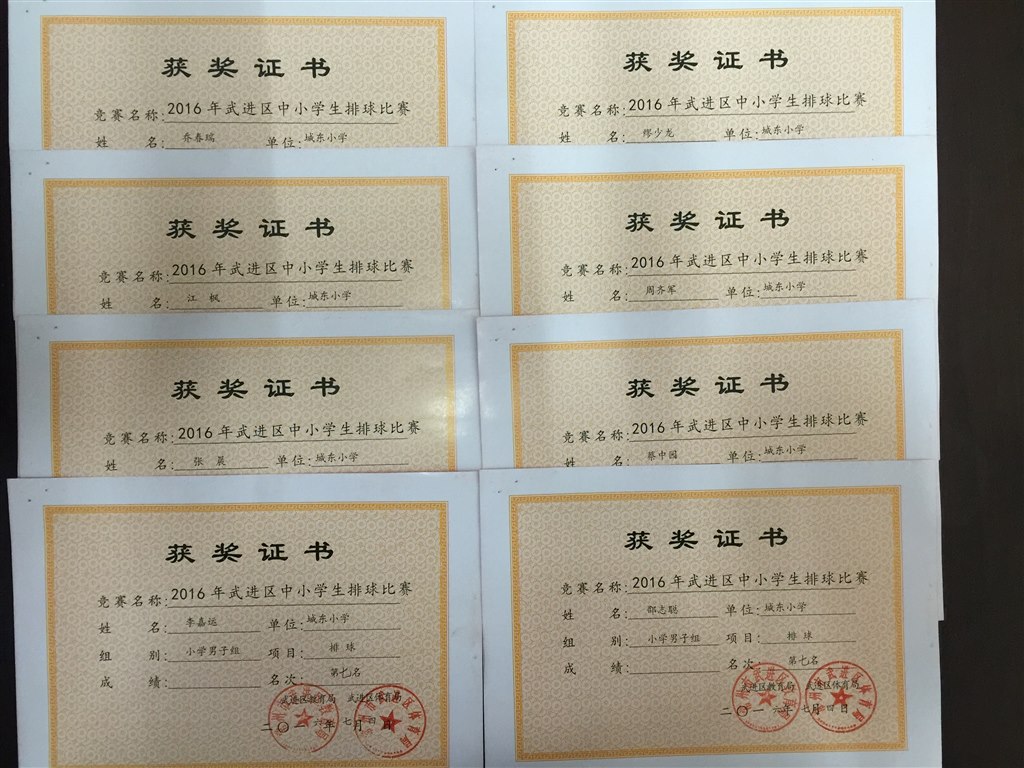 获奖证书
竞赛名称:2016年武进区中小学生排球比赛
姓名:乔春瑞 单位:城东小学
获奖证书
竞赛名称:2016年武进区中小学生排球比赛
姓名:缪少龙 单位:城东小学
获奖证书
竞赛名称:2016年武进区中小学生排球比赛
姓名:江枫 单位:城东小学
获奖证书
竞赛名称:2016年武进区中小学生排球比赛
姓名:周齐军 单位:城东小学
获奖证书
竞赛名称:2016年武进区中小学生排球比赛
姓名:张晨 单位:城东小学
获奖证书
竞赛名称:2016年武进区中小学生排球比赛
姓名:蔡中园 单位:城东小学
获奖证书
竞赛名称:2016年武进区中小学生排球比赛
姓名:李嘉运 单位:城东小学
组别:小学男子组 项目:排球
成绩: 名次:第七名
武进区教育局 武进区体育局
二〇一六年七月四日
获奖证书
竞赛名称:2016年武进区中小学生排球比赛
姓名:邵志聪 单位:城东小学
组别:小学男子组 项目:排球
成绩: 名次:第七名
武进区教育局 武进区体育局
二〇一六年七月四日